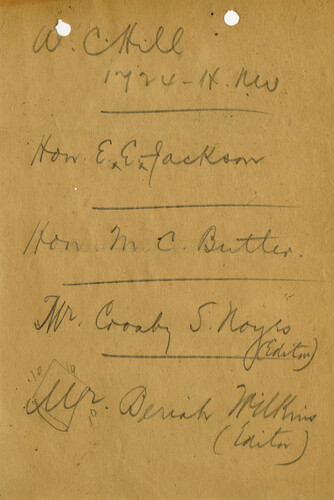 W. C. Hill
1724 - H. NW
Hon. E. E. Jackson
Hon. M. C. Butler.
Mr. Crosby S. Noyes
(Editor)
Mr. Beriah Wilkins
(Editor)